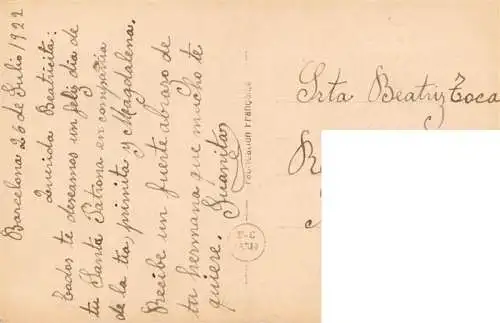 Barcelona 26 de Julio/1922
Querida Beatricita:
Todos te deseamos un feliz dia de
tu Santa Patrona en compañia
de la tia, primita y Magdalena.
Recibe un fuerte abrazo de
tu hermana que mucho te
quiere. Juanita
FABRICATION FRANÇAISE
Srta Beatriz Toca